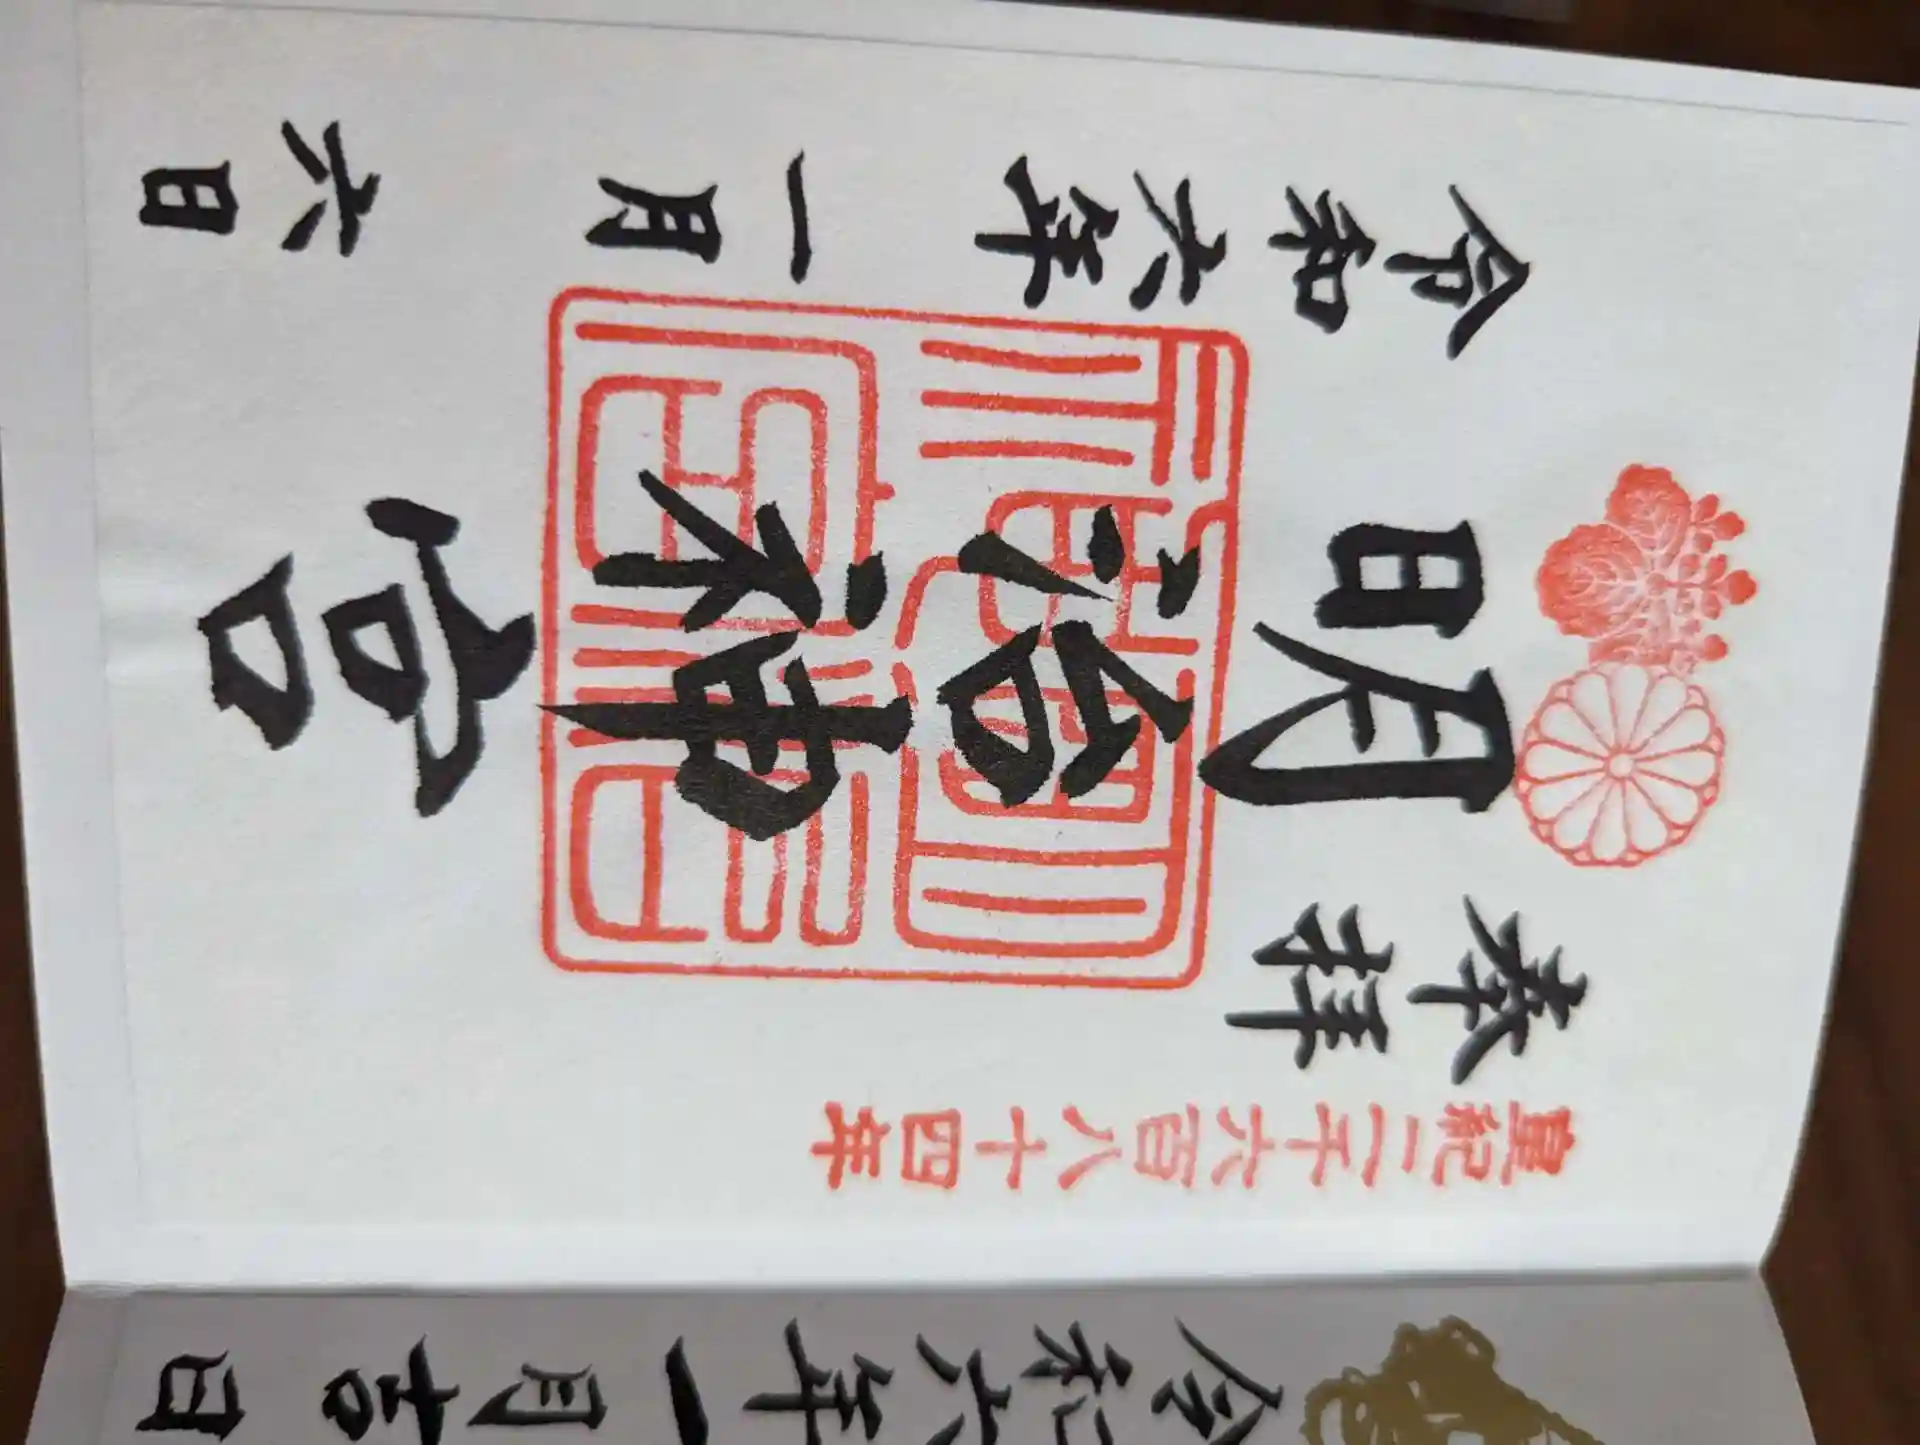 皇紀二千六百八十四年
奉拝
明治神宮
令和六年
一月
六日
令和六年一月吉日